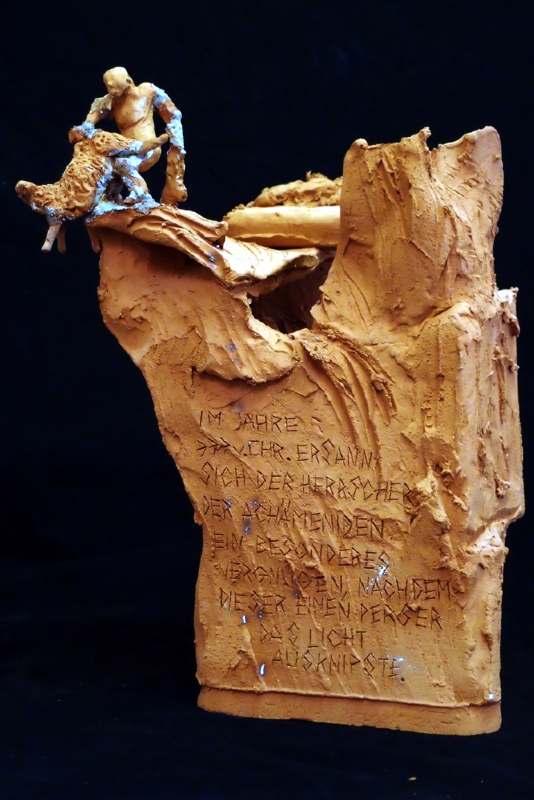 IM JAHRE
777 V. CHR. ERSANN
SICH DER HERRSCHER
DER ACHÄMENIDEN
EIN BESONDERES
VERGNÜGEN, NACHDEM
DIESER EINEN PERSER
DAS LICHT
AUSKNIPSTE.